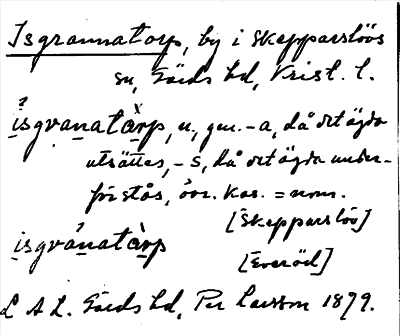 Isgrannatorp, by i Skepparslövs
sn, Gärds hd, Krist. l.
isgvanatarp, n, gen. -a, då det ägda
utsättes, -s, då det ägda under-
förstås, övr. kas. = nom.
[Skepparslöv]
isgvanatàrp
[Everöd]
L A L. Gärds hd, Per Larsson 1879.